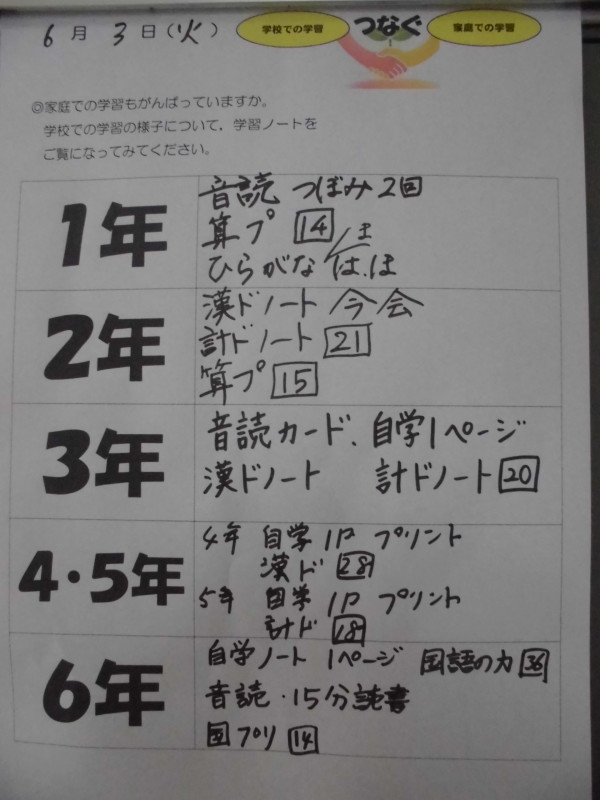 6月3日(火)
学校での学習 つなぐ 家庭での学習
◎家庭での学習もがんばっていますか。
学校での学習の様子について，学習ノートを
ご覧になってみてください。
1年
音読 つぼみ2回
算プ 14
ま
ひらがな は.ほ
2年
漢ドノート 今会
計ドノート 21
算プ 15
3年
音読カード、自学1ページ
漢ドノート 計ドノート 20
4・5年
4年 自学1P プリント
漢ド 28
5年 自学1P プリント
計ド 18
6年
自学ノート 1ページ 国語の力 36
音読・15分読書
国プリ 14